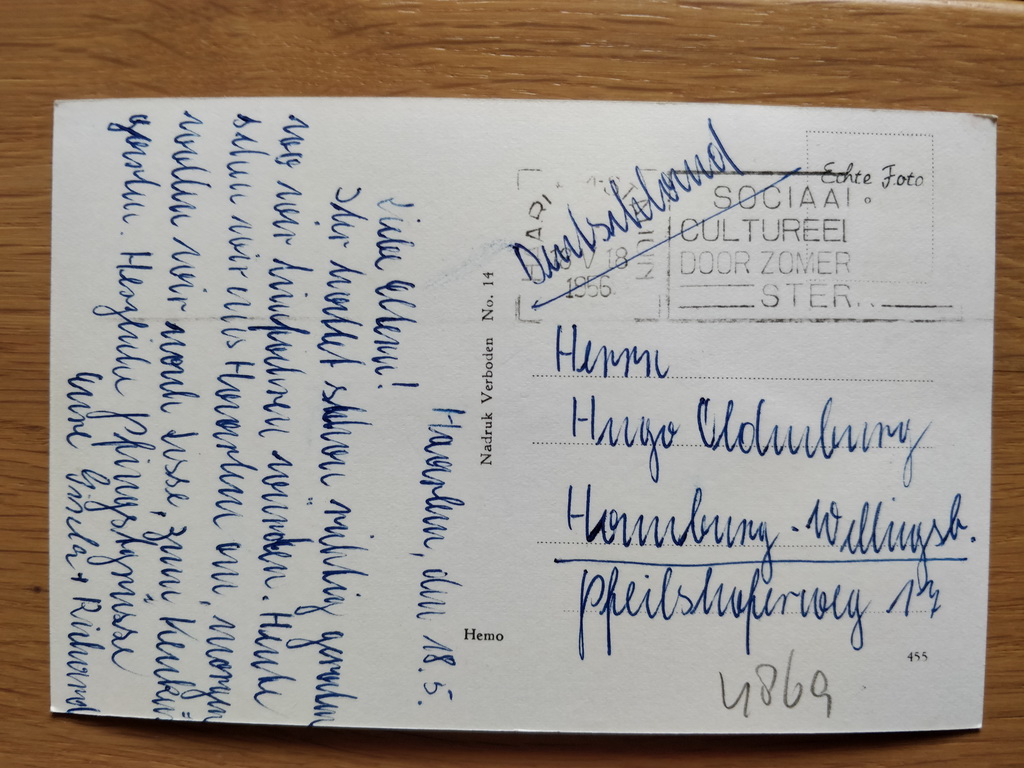 Haarlem, den 18.5.
Liebe Eltern!
Ihr hattet schon richtig geraten
wo wir hinfahren würden. Heute
sehen wir uns Haarlem an, morgen
wollen wir nach Lisse, zum Keuken
garten. Herzliche Pfingstgrüsse
eure Gisela + Richard
Nadruk Verboden No. 14
Hemo
Echte Foto
SOCIAAL
CULTUREEL
DOOR ZOMER
STER
18
1956
Deutschland
Herrn
Hugo Oldenburg
Hamburg-Wellingsb.
Pfeilshoferweg 17
455
4869